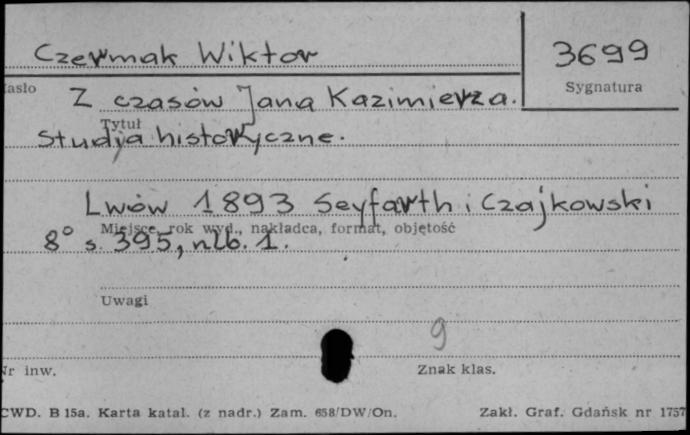 Czermak Wiktor
3699
Sygnatura
asło
Z czasów Jana Kazimierza.
Tytuł
Studja historyczne.
Lwów 1893 Seyfarth i Czajkowski
Miejsce, rok wyd., nakładca, format, objętość
8° s. 395, nlb. 1.
Uwagi
9
Nr inw.
Znak klas.
CWD. B 15a. Karta katal. (z nadr.) Zam. 658/DW/On.
Zakł. Graf. Gdańsk nr 1757